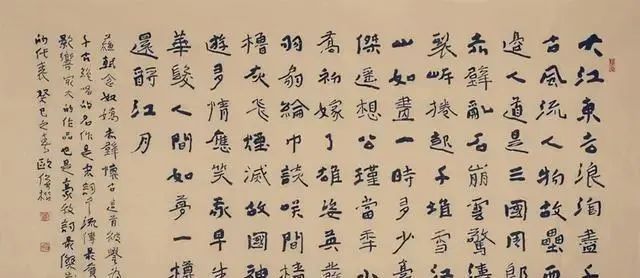 大江東去浪淘盡千
古風流人物故壘西
邊人道是三國周郎
赤壁亂石崩雲驚濤
裂岸捲起千堆雪江
山如畫一時多少豪
傑遥想公瑾當年小
喬初嫁了雄姿英
羽扇綸巾談咲間檣
櫓灰飛煙滅故國神
遊多情應笑我早生
華髮人間如夢一樽
還酹江月
蘇軾念奴嬌赤壁懷古是首被譽為
千古絶唱的名作是宋詞中流傳最廣
影響最大的作品也是豪放詞最傑
的代表癸巳之春歐